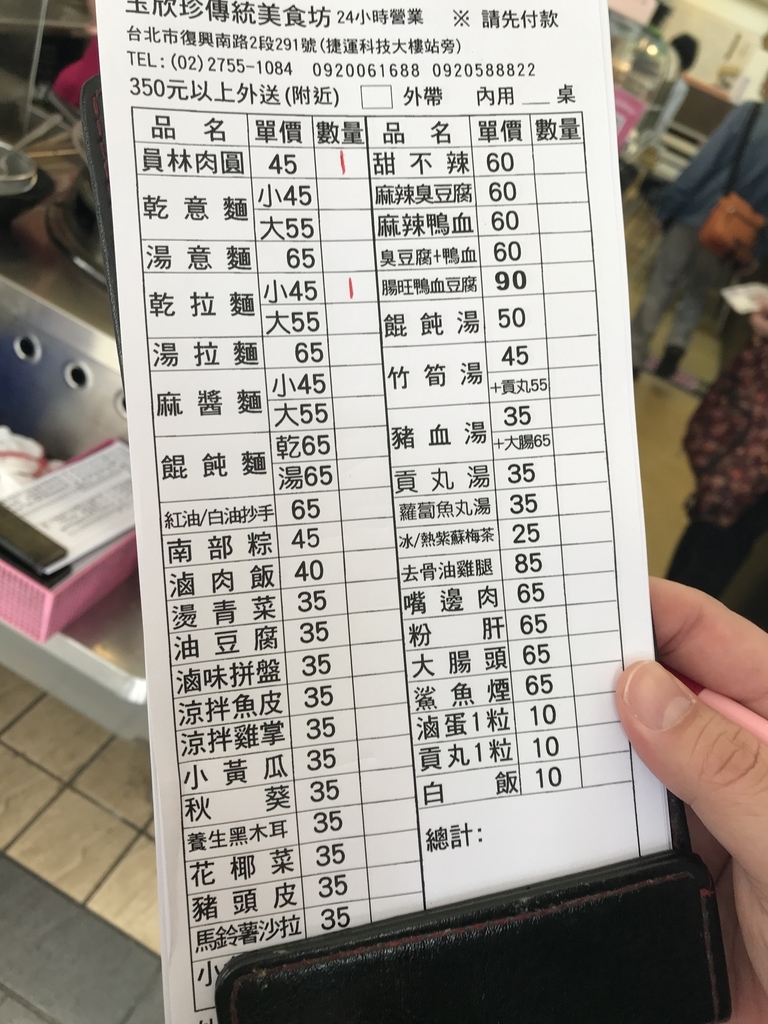 玉欣珍傳統美食坊 24小時營業 ※ 請先付款
台北市復興南路2段291號(捷運科技大樓站旁)
TEL:(02)2755-1084 0920061688 0920588822
350元以上外送(附近) 外帶 內用 桌
品名 單價 數量 品名 單價 數量
員林肉圓 45 1 甜不辣 60
乾意麵 小45 麻辣臭豆腐 60
大55 麻辣鴨血 60
湯意麵 65 臭豆腐+鴨血 60
乾拉麵 小45 1 腸旺鴨血豆腐 90
大55 餛飩湯 50
湯拉麵 65 竹筍湯 45
麻醬麵 小45 +貢丸55
大55 豬血湯 35
餛飩麵 乾65 +大腸65
湯65 貢丸湯 35
紅油/白油抄手 65 蘿蔔魚丸湯 35
南部粽 45 冰/熱紫蘇梅茶 25
滷肉飯 40 去骨油雞腿 85
燙青菜 35 嘴邊肉 65
油豆腐 35 粉肝 65
滷味拼盤 35 大腸頭 65
涼拌魚皮 35 鯊魚煙 65
涼拌雞掌 35 滷蛋1粒 10
小黃瓜 35 貢丸1粒 10
秋葵 35 白飯 10
養生黑木耳 35 總計:
花椰菜 35
豬頭皮 35
馬鈴薯沙拉 35
小